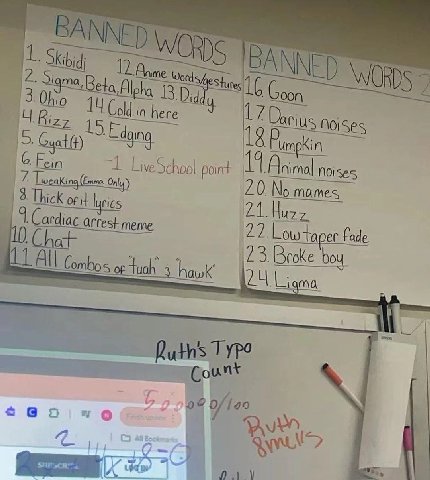 BANNED WORDS
1. Skibidi
2. Sigma, Beta, Alpha
3. Ohio
4. Rizz
5. Gyat(t)
6. Fein
7. Tweaking (Emma Only)
8. Thick of it lyrics
9. Cardiac arrest meme
10. Chat
11. All Combos of "tuah" & "hawk"
12. Anime words/gestures
13. Diddy
14. Cold in here
15. Edging
-1 LiveSchool point
BANNED WORDS 2
16. Goon
17. Darius noises
18. Pumpkin
19. Animal noises
20. No mames
21. Huzz
22. Low taper fade
23. Broke boy
24. Ligma
Ruth's Typo
Count
500000/100
Ruth
smells
All Bookmarks
SUBSCRIBE
LOG IN